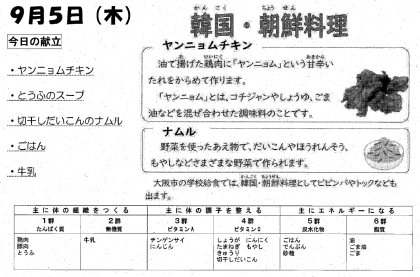 9月5日（木）
今日の献立
・ヤンニョムチキン
・とうふのスープ
・切干しだいこんのナムル
・ごはん
・牛乳
韓国・朝鮮料理
かん こく ちょう せん
ヤンニョムチキン
油で揚げた鶏肉に「ヤンニョム」という甘辛い
たれをからめて作ります。
「ヤンニョム」とは、コチジャンやしょうゆ、ごま
油などを混ぜ合わせた調味料のことです。
ナムル
野菜を使ったあえ物で、だいこんやほうれんそう、
もやしなどさまざまな野菜で作られます。
大阪市の学校給食では、韓国・朝鮮料理としてビビンバやトックなども
出ます。
主に体の組織をつくる 主に体の調子を整える 主にエネルギーになる
1群 2群 3群 4群 5群 6群
たんぱく質 無機質 ビタミンA ビタミンC 炭水化物 脂質
鶏肉 牛乳 チンゲンサイ しょうが にんにく ごはん 油
豚肉 にんじん たまねぎ もやし でんぷん ごま油
とうふ きゅうり 砂糖 ごま
切干しだいこん